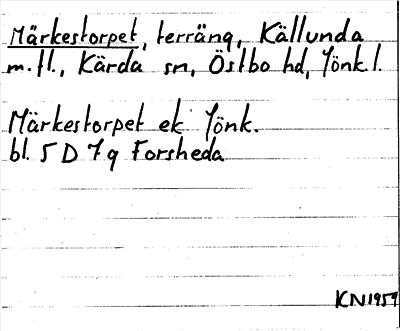 Märkestorpet, terräng, Källunda
m.fl., Kärda sn, Östbo hd, Jönk l.
Märkestorpet ek Jönk.
bl. 5 D 7 g Forsheda
KN 1959